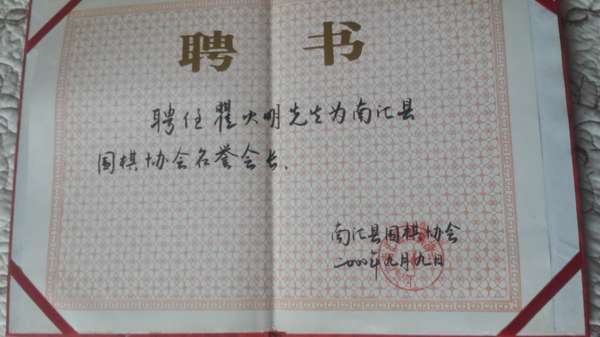 聘书
聘任瞿大明先生为南汇县
围棋协会名誉会长.
南汇县围棋协会
二〇〇〇年九月九日